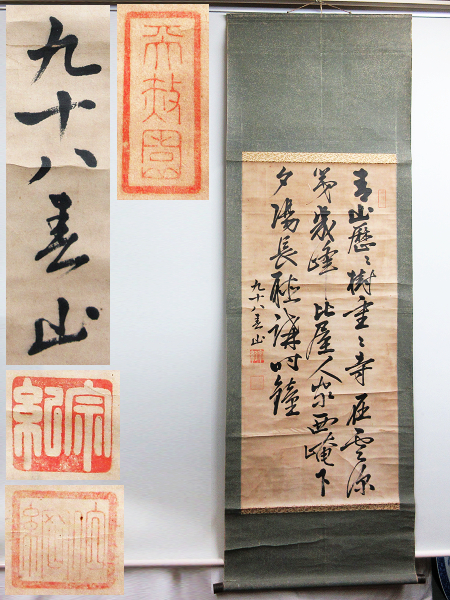 青山歴々樹重々寺在雲深
第幾峰比屋人家西崦下
夕陽長聴講時鐘
九十八春山
九十八春山
宗紀